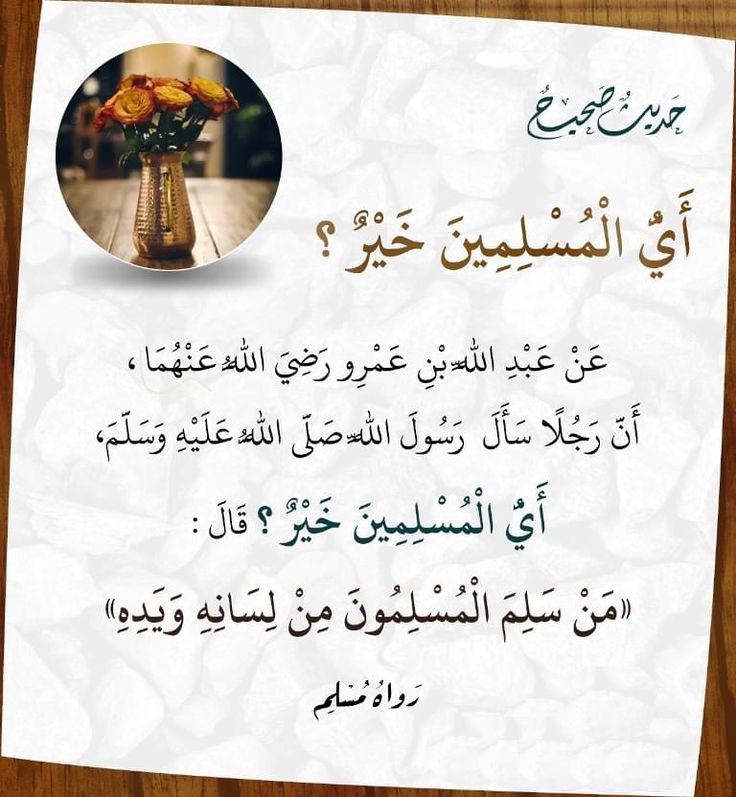 حَدِيثٌ صَحِيحٌ
أَيُّ الْمُسْلِمِينَ خَيْرٌ ؟
عَنْ عَبْدِ اللهِ بْنِ عَمْرٍو رَضِيَ اللهُ عَنْهُمَا ،
أَنّ رَجُلًا سَأَلَ رَسُولَ اللهِ صَلّى اللهُ عَلَيْهِ وَسَلّمَ،
أَيُّ الْمُسْلِمِينَ خَيْرٌ ؟ قَالَ :
«مَنْ سَلِمَ الْمُسْلِمُونَ مِنْ لِسَانِهِ وَيَدِهِ»
رَوَاهُ مُسْلِم